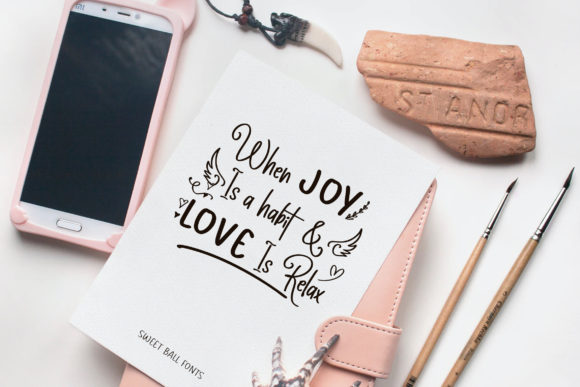 mi
ST ANDR
When JOY
Is a habit &
LOVE Is Relax
SWEET BALL FONTS